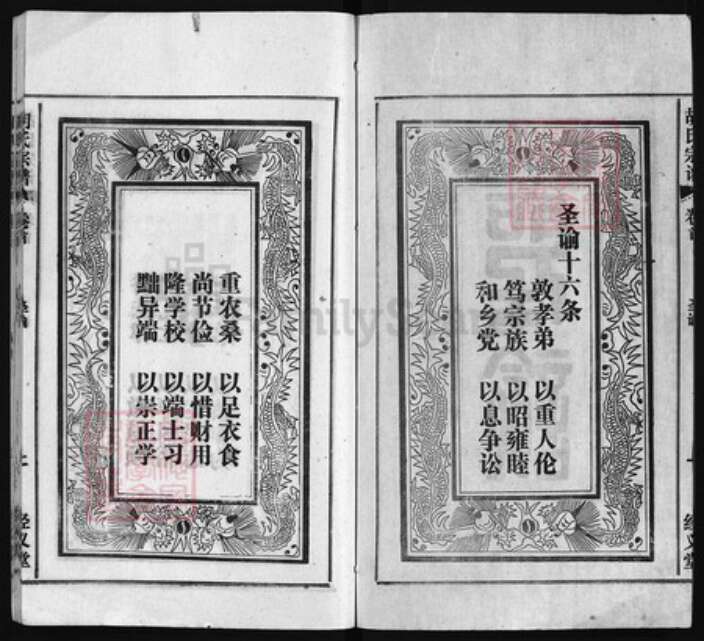 胡氏宗谱 卷首
圣谕
经义堂
圣谕十六条
敦孝弟 以重人伦
笃宗族 以昭雍睦
和乡党 以息争讼
重农桑 以足衣食
尚节俭 以惜财用
隆学校 以端士习
黜异端 以崇正学
胡氏宗谱 卷首
圣谕
经义堂